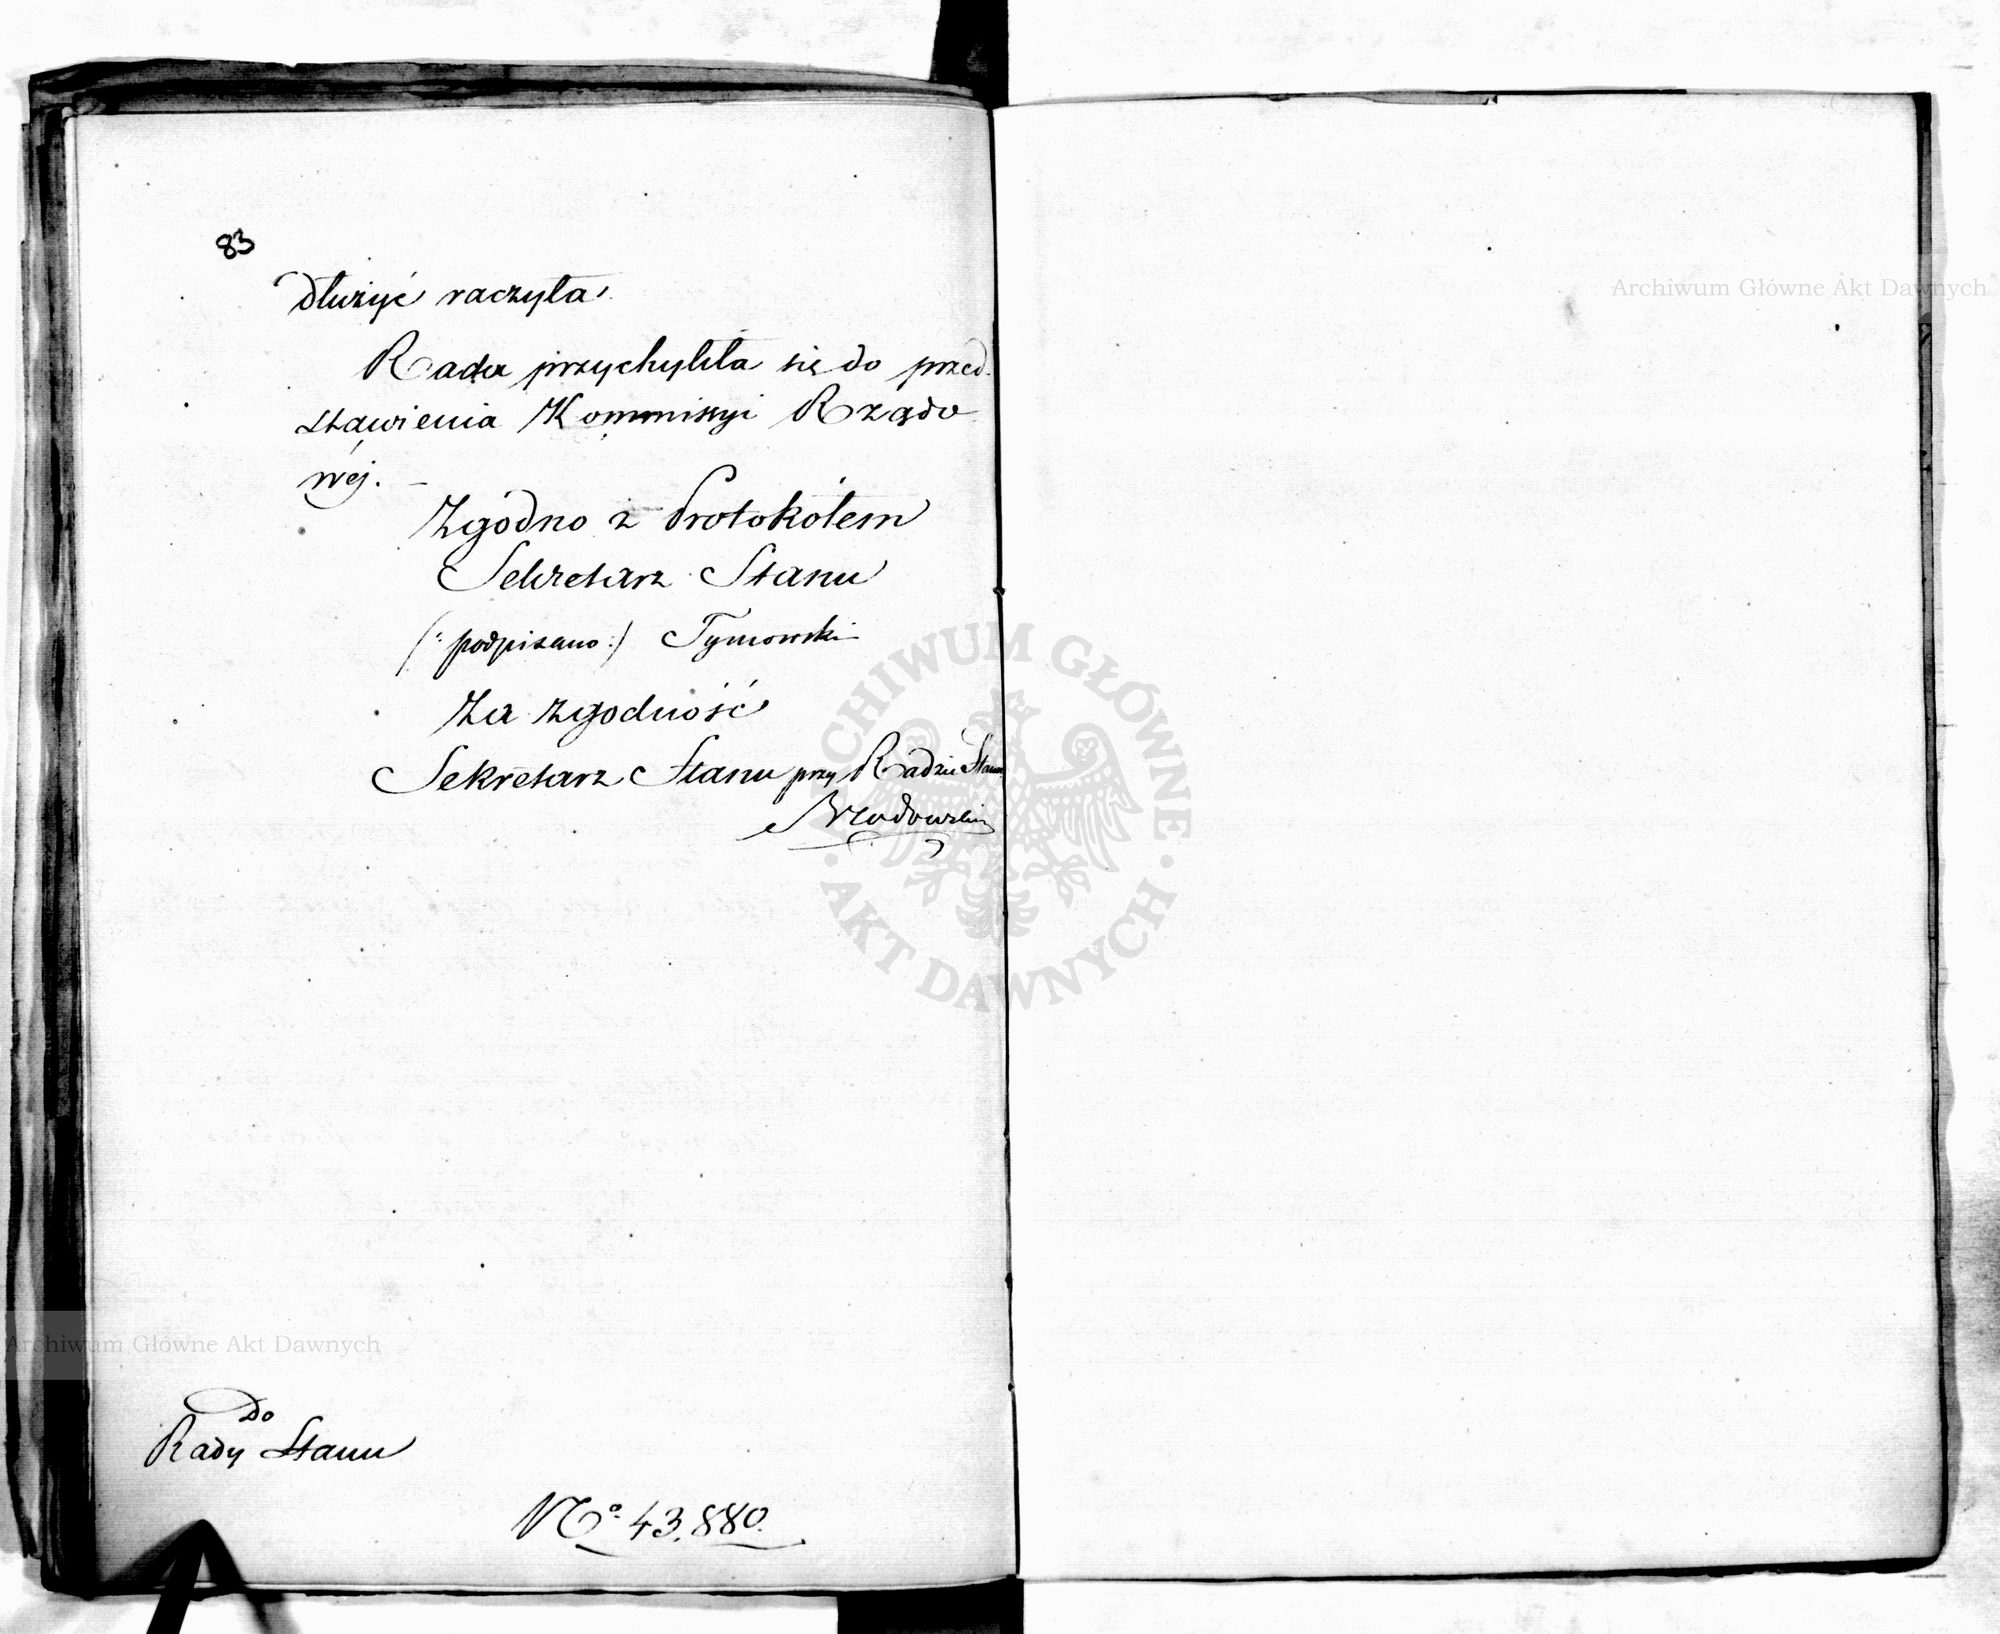 83
dłużyć raczyła.
Rada przychyliła się do przed-
stawienia Kommissyi Rządo
wéj. –
Zgódno z Protokółem
Sekretarz Stanu
(: podpisano :) Tymowski
Za zgodność
Sekretarz Stanu przy Radzie Stanu
Brzodowski
Do
Rady Stanu
No. 43,880.
ARCHIWUM GŁÓWNE
AKT DAWNYCH
Archiwum Główne Akt Dawnych
Archiwum Główne Akt Dawnych